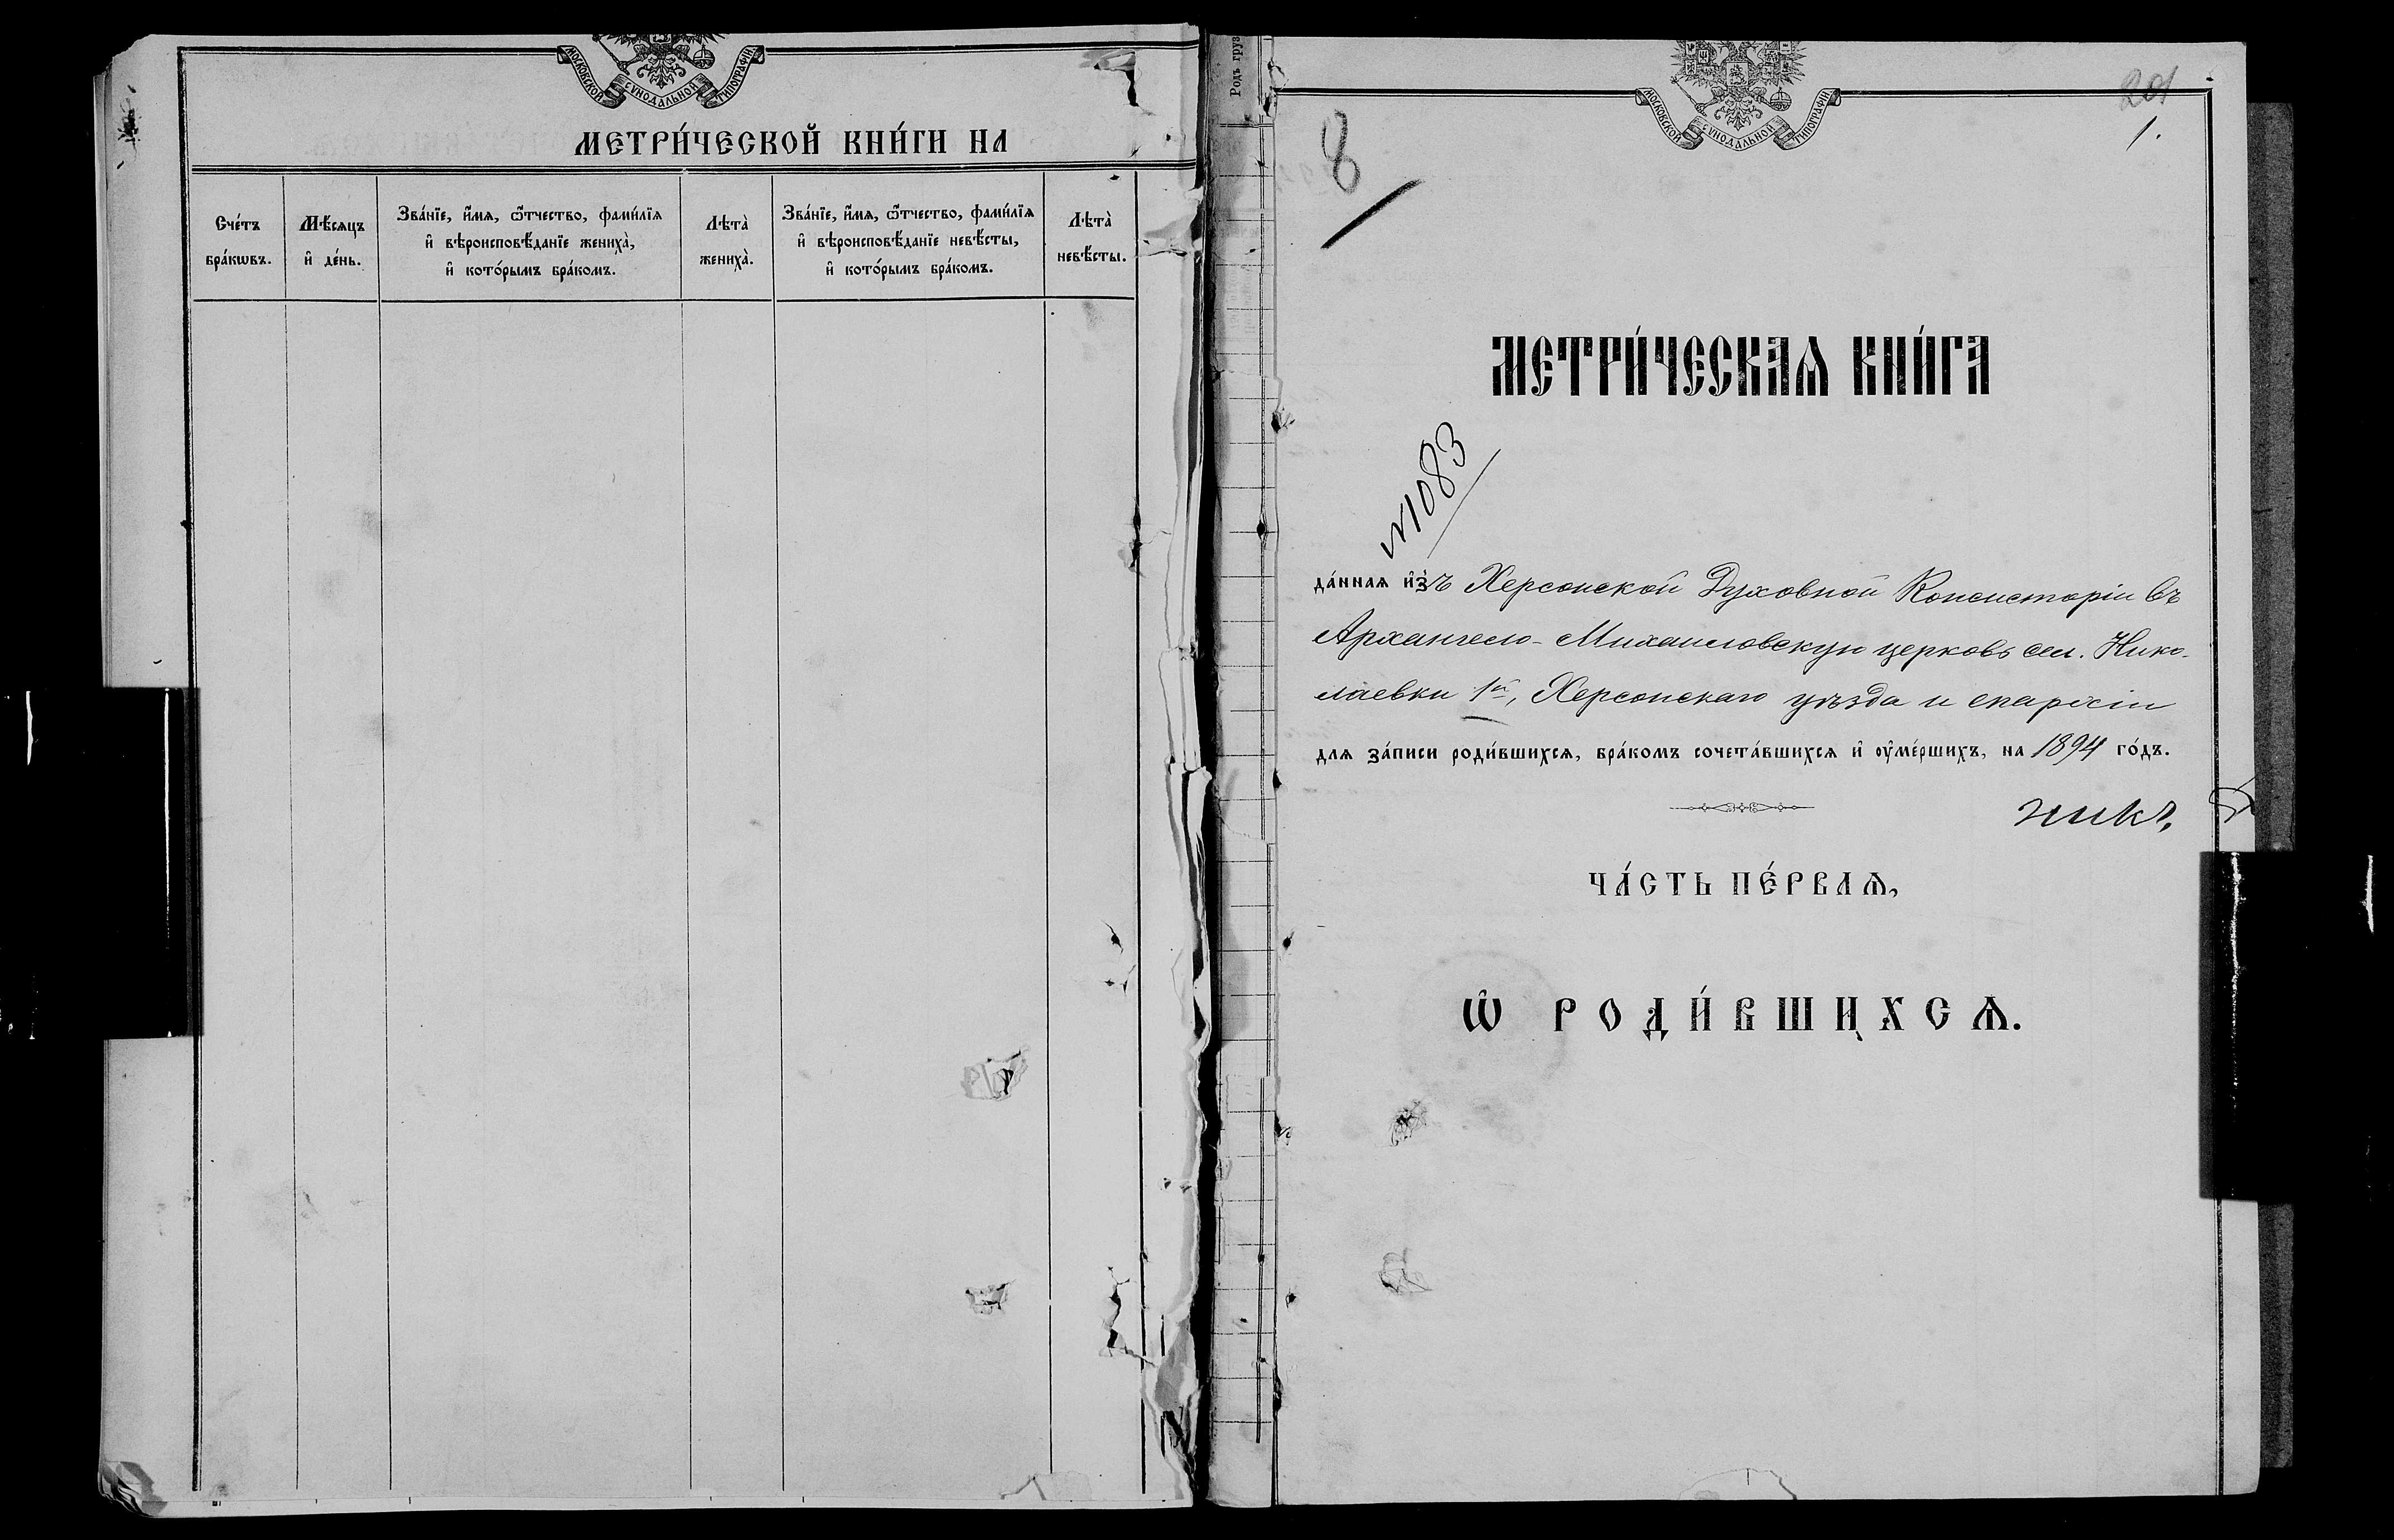 МОСКОВСКОЙ СѴНОДАЛЬНОЙ ТИПОГРАФІИ
МЕТРИ́ЧЕСКОЙ КНИ́ГИ НА
Сче́тъ
бра́кѡвъ.
Мѣ́сяцъ
и҆ де́нь.
Зва́нїе, и҆́мѧ, ѻ҆́тчество, фамѝлїѧ
и҆ вѣроисповѣ́данїе жениха̀,
и҆ кото́рымъ бра́комъ.
Лѣта̀
жениха̀.
Зва́нїе, и҆́мѧ, ѻ҆́тчество, фами́лїѧ
и҆ вѣроисповѣ́данїе невѣ́сты,
и҆ кото́рымъ бра́комъ.
Лѣта̀
невѣ́сты.
Родъ груз
МОСКОВСКОЙ СѴНОДАЛЬНОЙ ТИПОГРАФІИ
201
1.
8
МЕТРИ́ЧЕСКАѦ КНИ́ГА
№1083
да́ннаѧ и҆зъ Херсонской Духовной Консисторіи въ
Архангело-Михаиловскую церковь сел. Нико-
лаевки 1й, Херсонскаго уѣзда и епархіи
для за́писи роди́вшихсѧ, бра́комъ сочета́вшихсѧ и҆ оу҆ме́ршихъ, на 1894 го́дъ.
ЧА́СТЬ ПЕ́РВАѦ,
Ѡ҆ РОДИ́ВШИХСѦ.